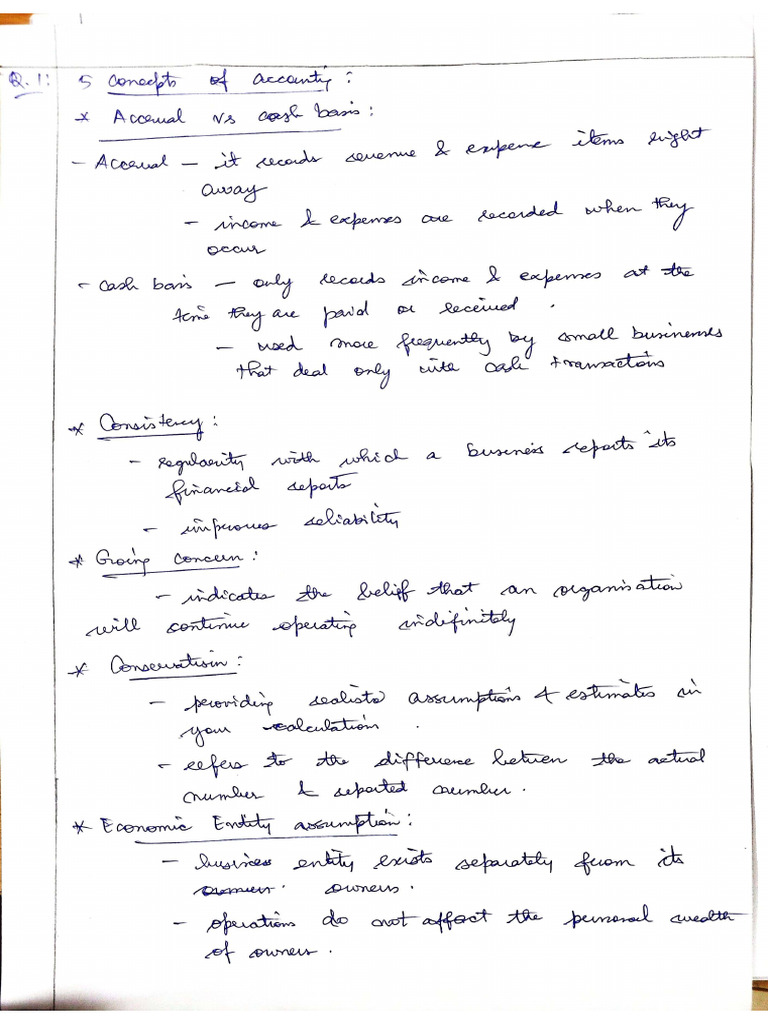 Q.1: 5 Concepts of accounty:
* Accrual vs cash basis:
- Accrual - it records revenue & expense items right
away
- income & expenses are recorded when they
occur
- cash basis - only records income & expenses at the
time they are paid or received.
- used more frequently by small businesses
that deal only with cash transactions
* Consistency:
- regularity with which a business reports its
financial reports
- improves reliability
* Going concern:
- indicates the belief that an organisation
will continue operating indifinitely
* Conservatism:
- providing realistic assumptions & estimates in
your calculations.
- refers to the difference between the actual
number & reported number.
* Economic Entity assumption:
- business entity exists separately from its
owners.
- operations do not affect the personal wealth
of owners.